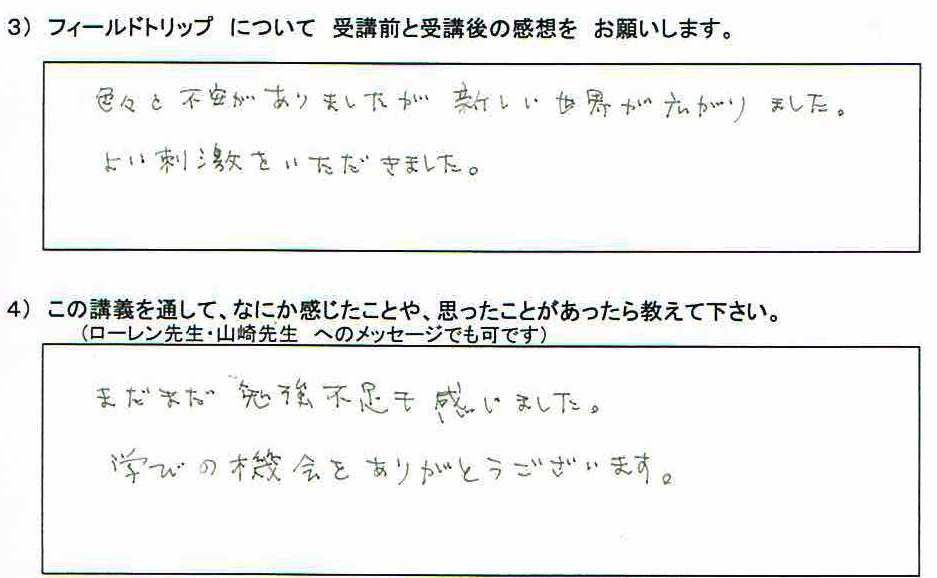 3) フィールドトリップ について 受講前と受講後の感想を お願いします。
色々と不安がありましたが 新しい世界が広がりました。
よい刺激をいただきました。
4) この講義を通して、なにか感じたことや、思ったことがあったら教えて下さい。
(ローレン先生・山崎先生 へのメッセージでも可です)
まだまだ 勉強不足を感じました。
学びの機会をありがとうございます。